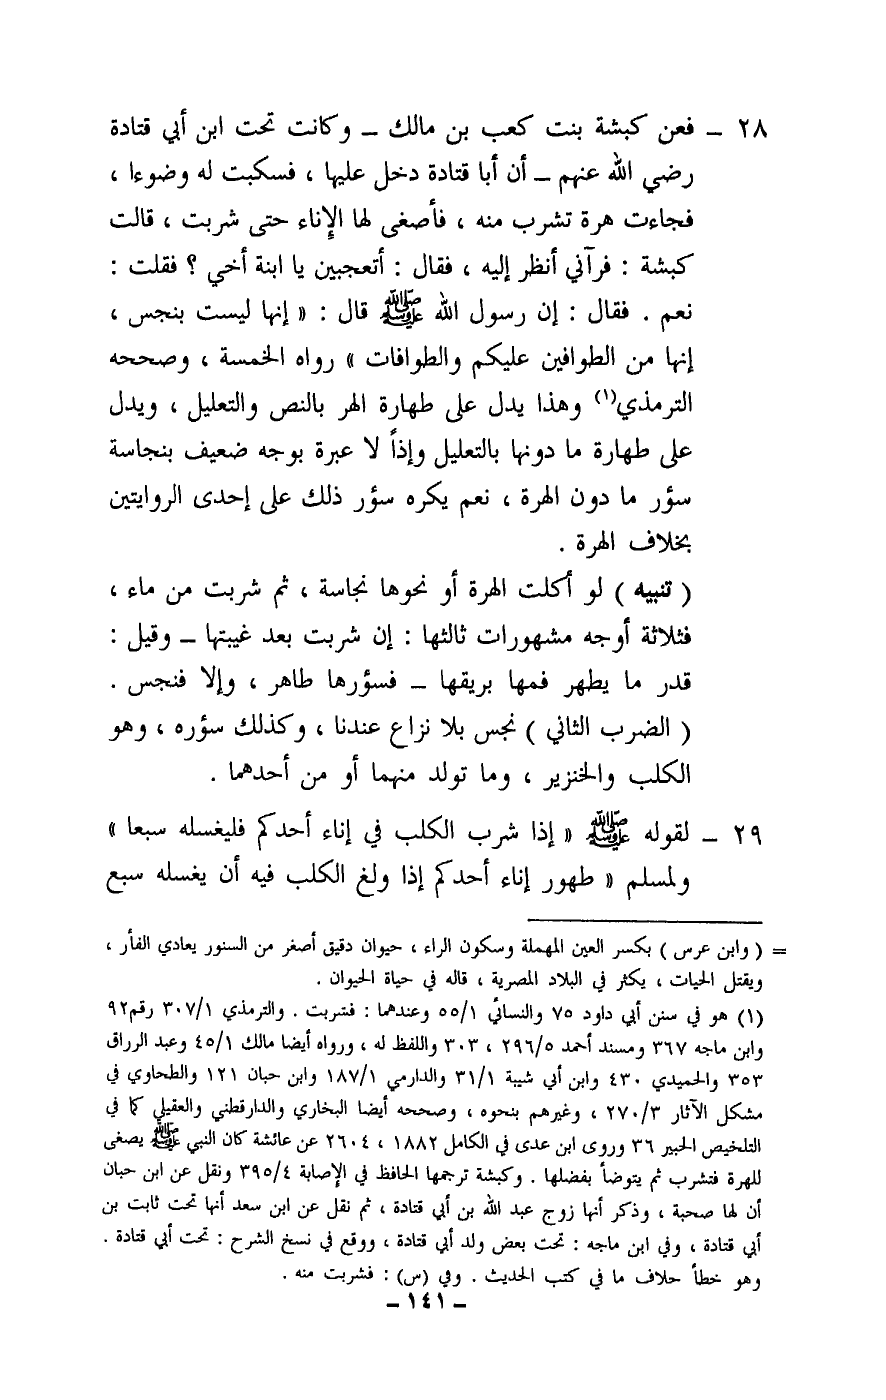 ٢٨ ــ فعن كبشة بنت كعب بن مالك ــ وكانت تحت ابن أبي قتادة
رضي الله عنهم ــ أن أبا قتادة دخل عليها ، فسكبت له وضوءا ،
فجاءت هرة تشرب منه ، فأصغى لها الإناء حتى شربت ، قالت
كبشة : فرآني أنظر إليه ، فقال : أتعجبين يا ابنة أخي ؟ فقلت :
نعم . فقال : إن رسول الله ﷺ قال : « إنها ليست بنجس ،
إنها من الطوافين عليكم والطوافات » رواه الخمسة ، وصححه
الترمذي(١) وهذا يدل على طهارة الهر بالنص والتعليل ، ويدل
على طهارة ما دونها بالتعليل وإذاً لا عبرة بوجه ضعيف بنجاسة
سؤر ما دون الهرة ، نعم يكره سؤر ذلك على إحدى الروايتين
بخلاف الهرة .
( تنبيه ) لو أكلت الهرة أو نحوها نجاسة ، ثم شربت من ماء ،
فثلاثة أوجه مشهورات ثالثها : إن شربت بعد غيبتها ــ وقيل :
قدر ما يطهر فمها بريقها ــ فسؤرها طاهر ، وإلا فنجس .
( الضرب الثاني ) نجس بلا نزاع عندنا ، وكذلك سؤره ، وهو
الكلب والخنزير ، وما تولد منهما أو من أحدهما .
٢٩ ــ لقوله ﷺ « إذا شرب الكلب في إناء أحدكم فليغسله سبعا »
ولمسلم « طهور إناء أحدكم إذا ولغ الكلب فيه أن يغسله سبع
= ( وابن عرس ) بكسر العين المهملة وسكون الراء ، حيوان دقيق أصغر من السنور يعادي الفأر ،
ويقتل الحيات ، يكثر في البلاد المصرية ، قاله في حياة الحيوان .
(١) هو في سنن أبي داود ٧٥ والنسائي ٥٥/١ وعندهما : فشربت . والترمذي ٣٠٧/١ رقم٩٢
وابن ماجه ٣٦٧ ومسند أحمد ٢٩٦/٥ ، ٣٠٣ واللفظ له ، ورواه أيضا مالك ٤٥/١ وعبد الرزاق
٣٥٣ والحميدي ٤٣٠ وابن أبي شيبة ٣١/١ والدارمي ١٨٧/١ وابن حبان ١٢١ والطحاوي في
مشكل الآثار ٢٧٠/٣ ، وغيرهم بنحوه ، وصححه أيضا البخاري والدارقطني والعقيلي كما في
التلخيص الحبير ٣٦ وروى ابن عدى في الكامل ١٨٨٢ ، ٢٦٠٤ عن عائشة كان النبي ﷺ يصغى
للهرة فتشرب ثم يتوضأ بفضلها . وكبشة ترجمها الحافظ في الإصابة ٣٩٥/٤ ونقل عن ابن حبان
أن لها صحبة ، وذكر أنها زوج عبد الله بن أبي قتادة ، ثم نقل عن ابن سعد أنها تحت ثابت بن
أبي قتادة ، وفي ابن ماجه : تحت بعض ولد أبي قتادة ، ووقع في نسخ الشرح : تحت أبي قتادة .
وهو خطأ خلاف ما في كتب الحديث . وفي (س) : فشربت منه .
ــ ١٤١ ــ